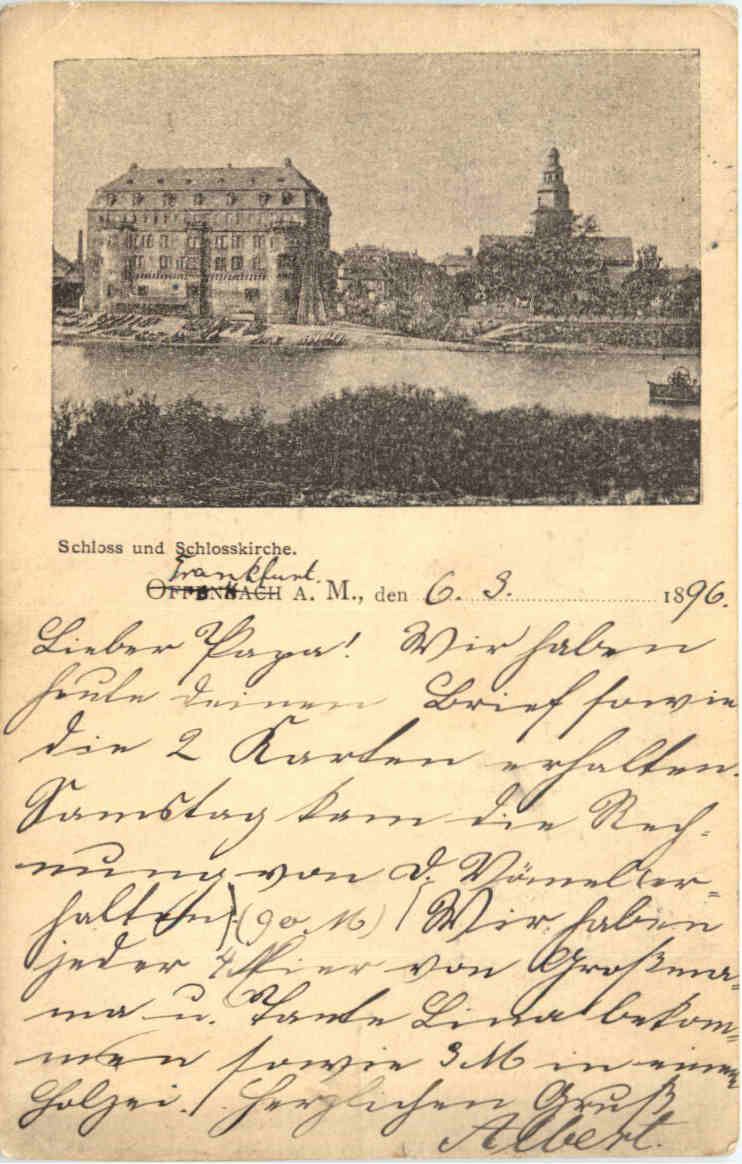 Schloss und Schlosskirche.
Frankfurt
OFFENBACH A. M., den 6. 3. 1896.
Lieber Papa! Wir haben
heute deinen Brief sowie
die 2 Karten erhalten.
Samstag kam die Rech-
nung von D.
(90 M) Wir haben
jeder 4 Eier von Großma-
ma u. Tante Lina bekom-
men sowie 3 M in einem
Holzei. Herzlichen Gruß
Albert.